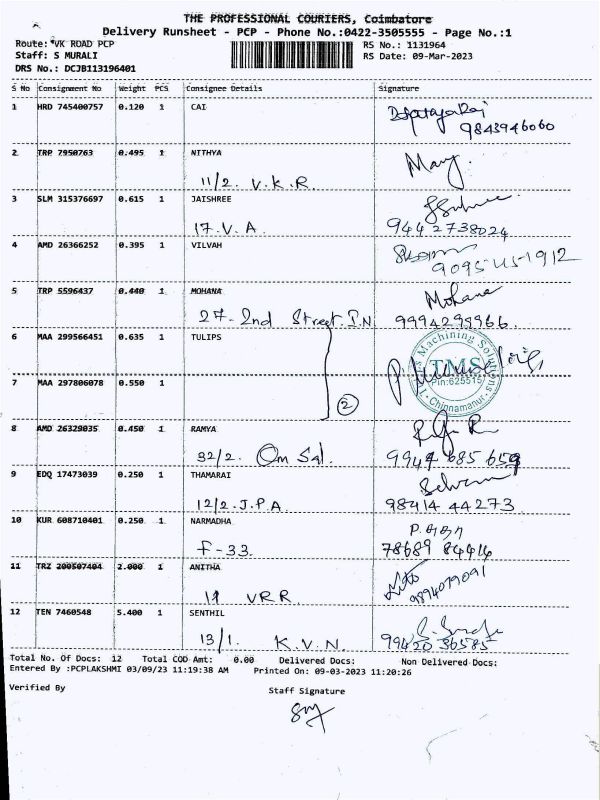 THE PROFESSIONAL COURIERS, Coimbatore
Delivery Runsheet - PCP - Phone No.:0422-3505555 - Page No.:1
Route:*VK ROAD PCP
RS No.: 1131964
Staff: S MURALI
RS Date: 09-Mar-2023
DRS No.: DCJB113196401
S No Consignment No Weight PCS Consignee Details Signature
1 HRD 745400757 0.120 1 CAI
9843946060
2 TRP 7950763 0.495 1 NITHYA
11/2. V.K.R.
3 SLM 315376697 0.615 1 JAISHREE
17.V.A. 9442738024
4 AMD 26366252 0.395 1 VILVAH
5 TRP 5596437 0.440 1 MOHANA Mohana
27-2nd Street.J.N 9994299966.
6 MAA 299566451 0.635 1 TULIPS
Machining Solutions
TMS
Pin:625515
Chinnamanur
7 MAA 297806078 0.550 1
2
8 AMD 26329035 0.450 1 RAMYA
32/2. Om Sal. 9944 685 659
9 EDQ 17473039 0.250 1 THAMARAI
12/2.J.P.A 98414 44273
10 KUR 608710401 0.250 1 NARMADHA
F-33. 78689 84414
11 TRZ 200507404 2.000 1 ANITHA
11 VRR. 9894079091
12 TEN 7460548 5.400 1 SENTHIL
13/1. K.V.N. 99420 36585
Total No. Of Docs: 12 Total COD Amt: 0.00 Delivered Docs: Non Delivered Docs:
Entered By :PCPLAKSHMI 03/09/23 11:19:38 AM Printed On: 09-03-2023 11:20:26
Verified By
Staff Signature